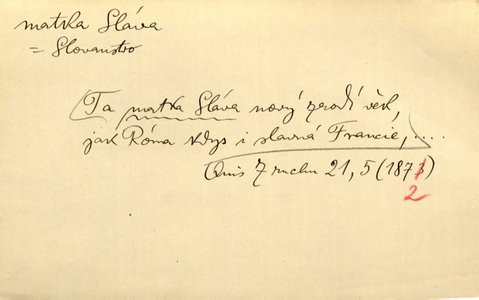 matka Sláva
= Slovanstvo
(Ta matka Sláva nový zrodí věk,
jak Róma kdys i slavná Francie, ....
Quis Z ruchu 21, 5 (1873)
2